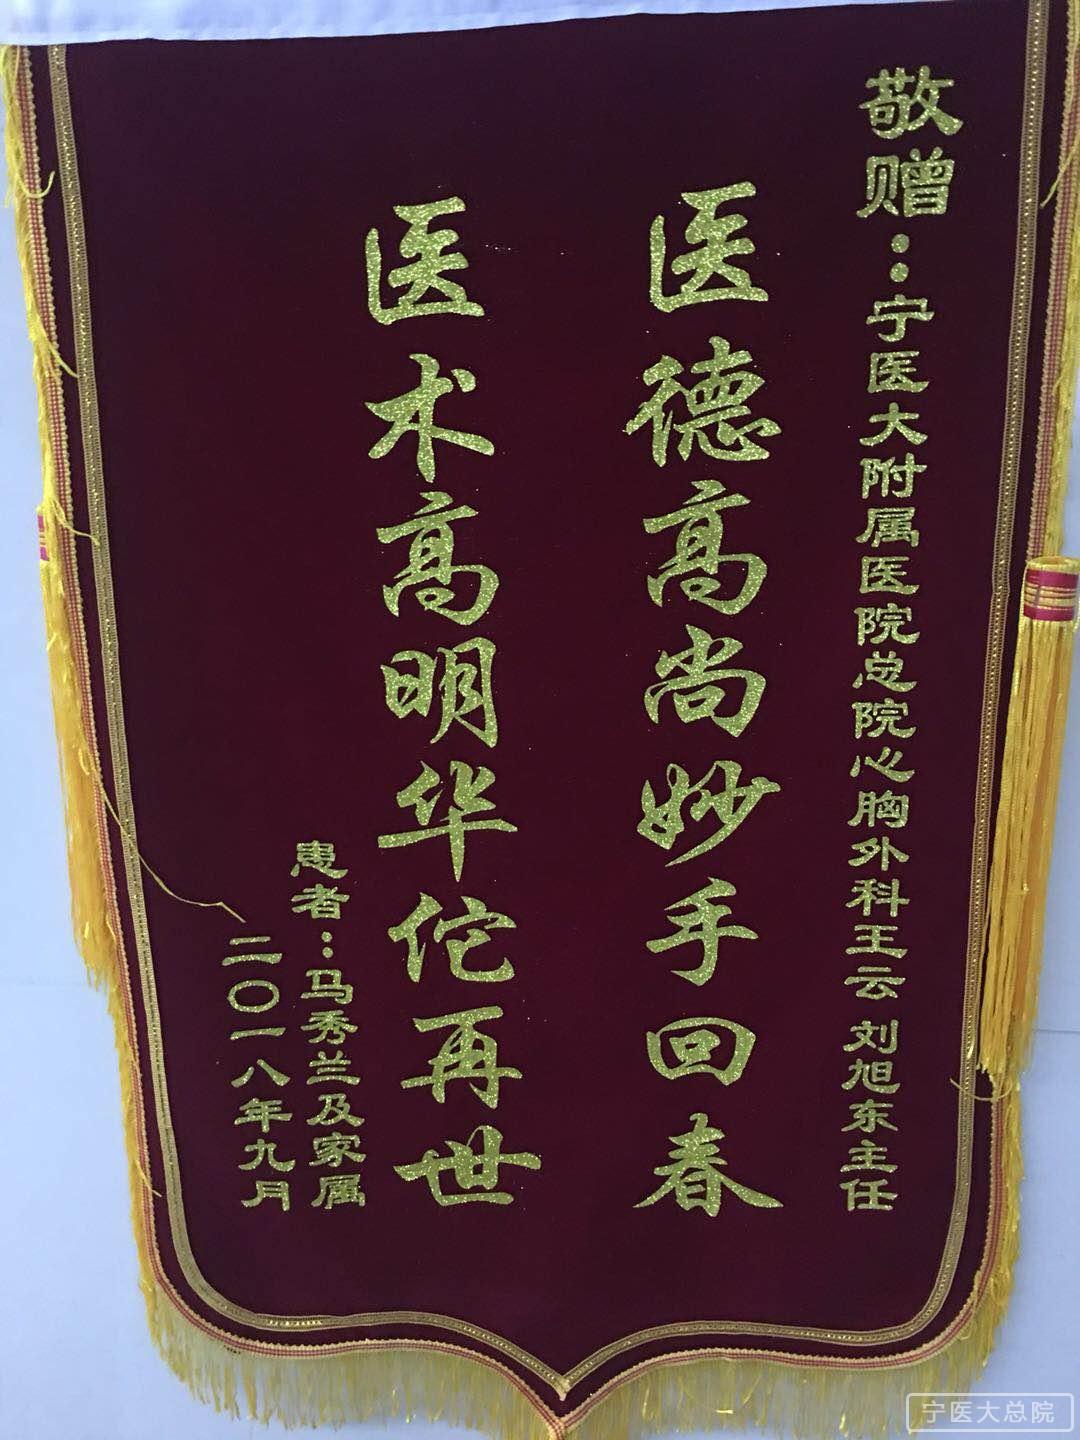 敬赠：宁医大附属医院总院心胸外科王云 刘旭东主任
医德高尚妙手回春
医术高明华佗再世
患者：马秀兰及家属
二〇一八年九月
宁医大总院